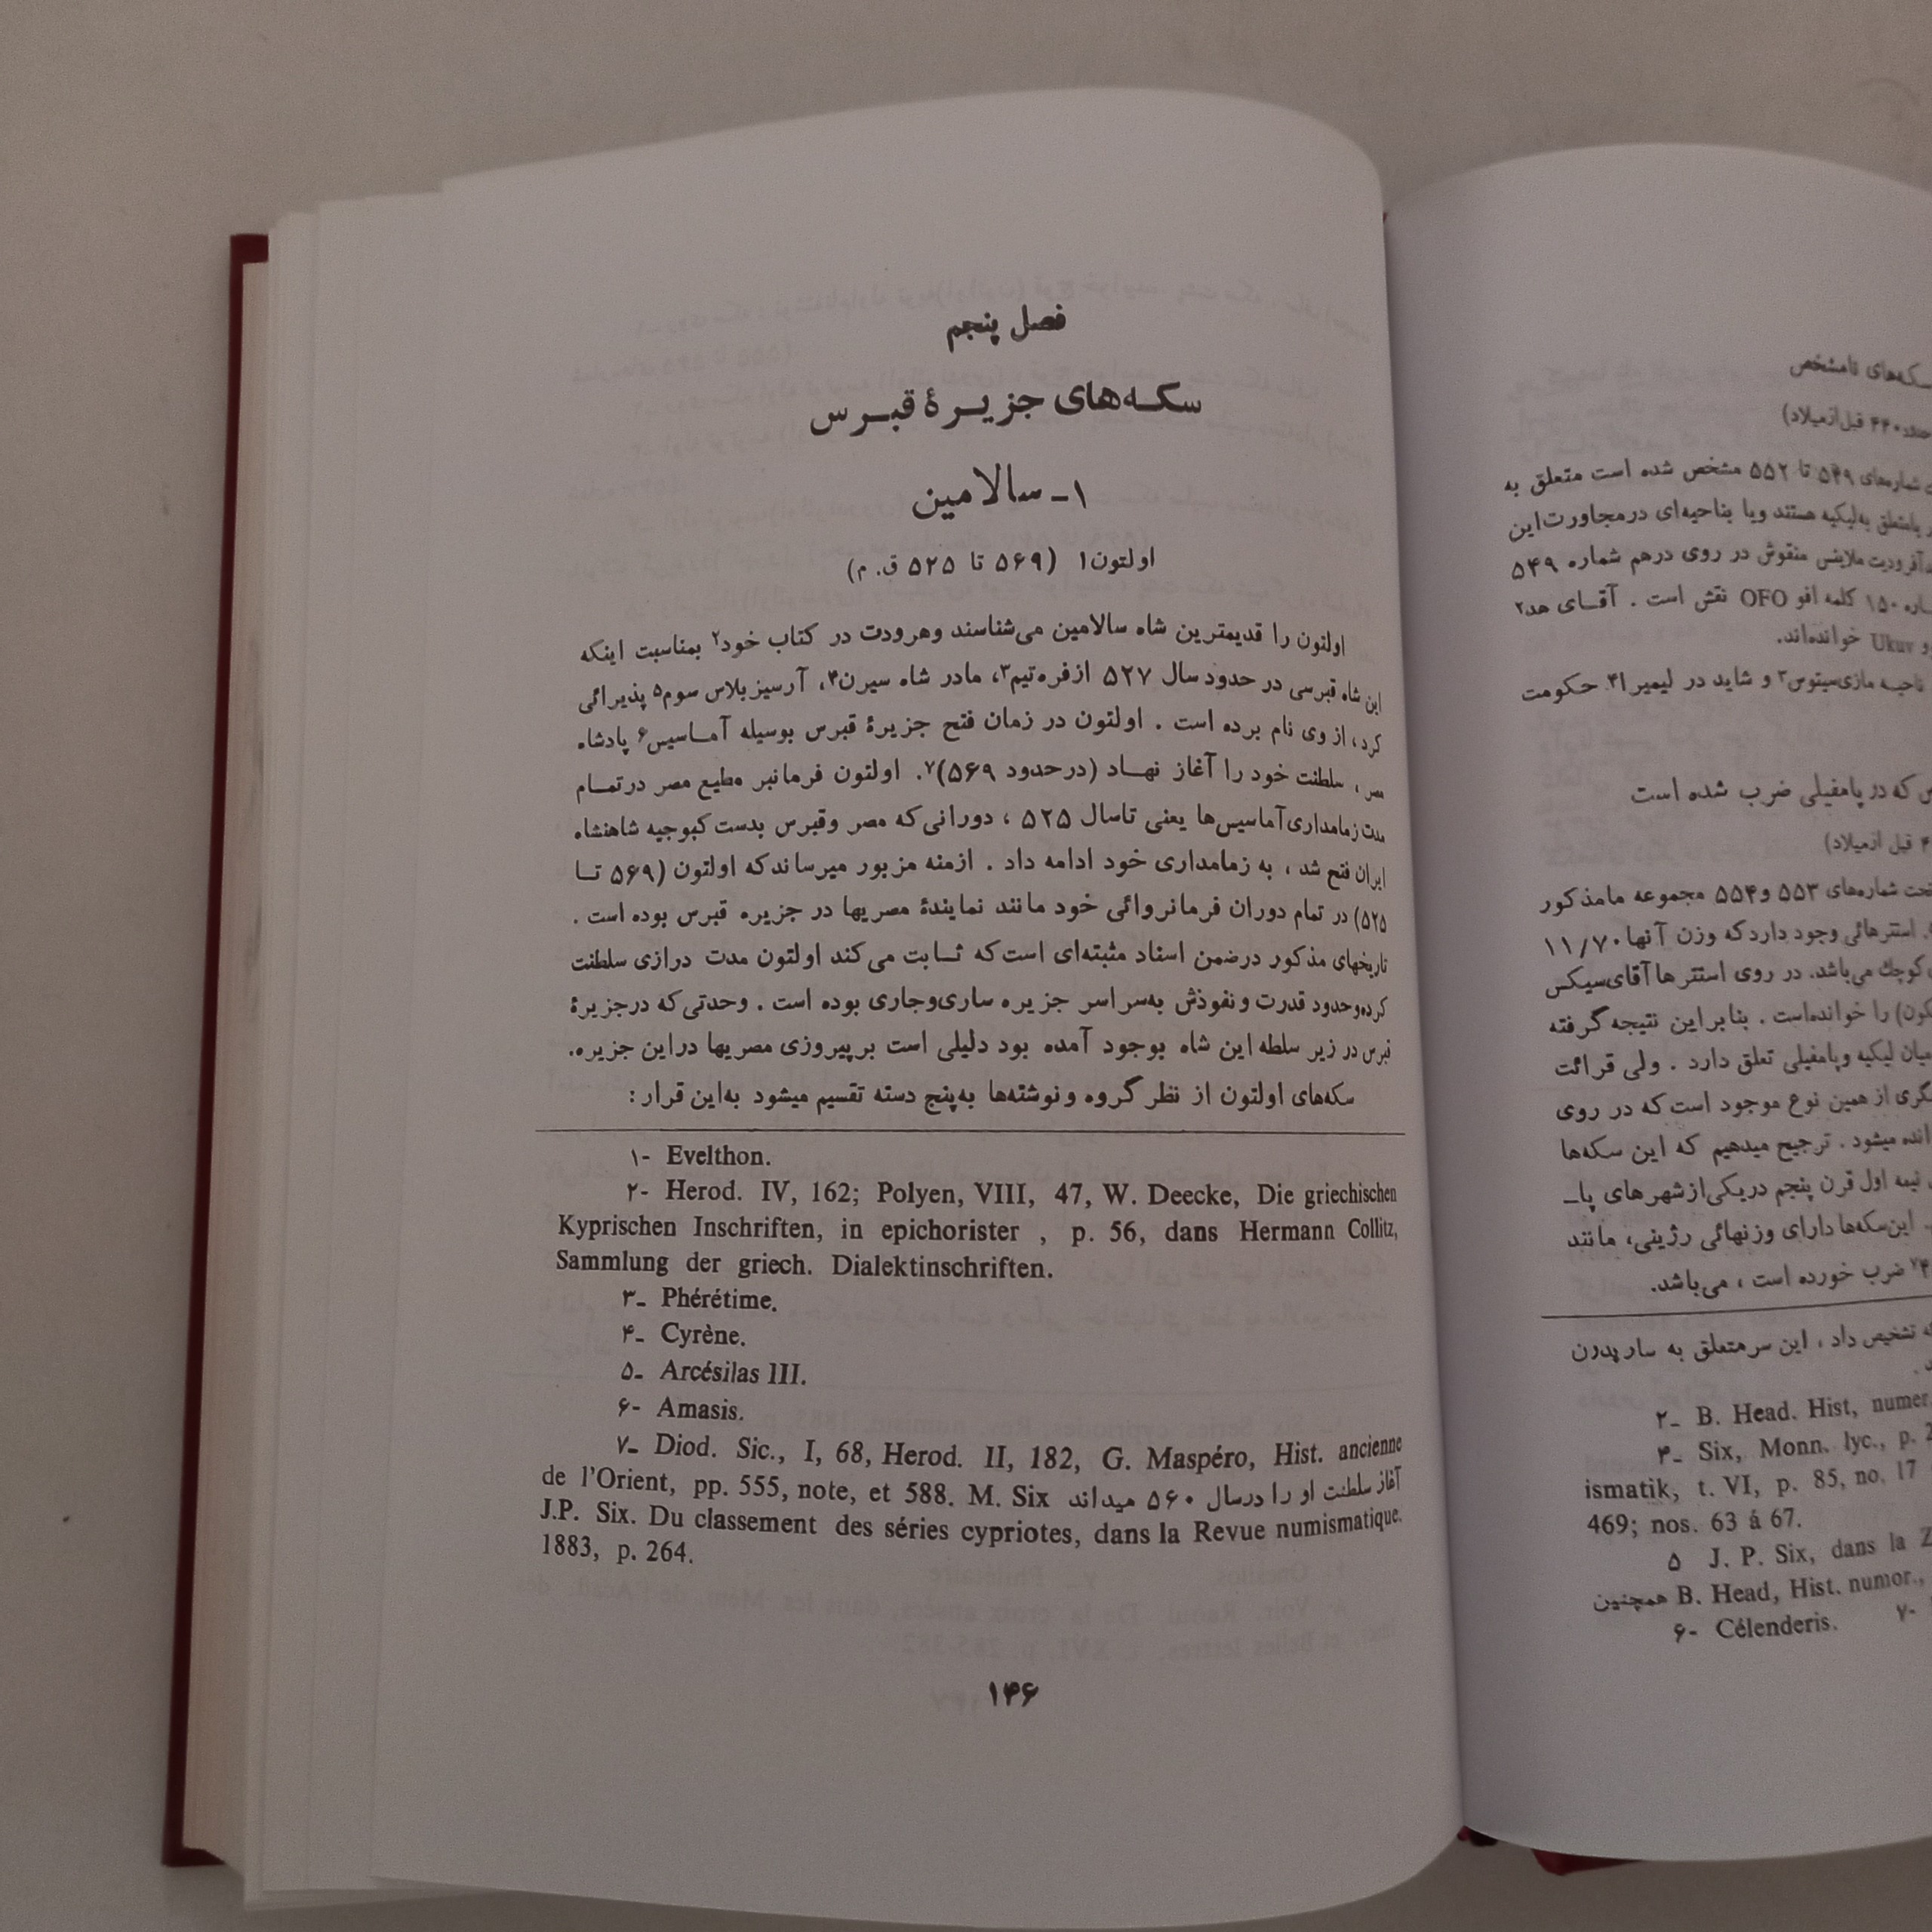 فصل پنجم
سکه‌های جزیرهٔ قبرس
۱ـ سالامین
اولتون۱ (۵۶۹ تا ۵۲۵ ق. م)
اولتون را قدیمترین شاه سالامین می‌شناسند وهرودت در کتاب خود۲ بمناسبت اینکه
این شاه قبرسی در حدود سال ۵۲۷ ازفره‌تیم۳، مادر شاه سیرن۴، آرسیزیلاس سوم۵ پذیرائی
کرد، از وی نام برده است . اولتون در زمان فتح جزیرهٔ قبرس بوسیله آمـاسیس۶ پادشاه
مصر ، سلطنت خود را آغاز نهـاد (درحدود ۵۶۹)۷. اولتون فرمانبر مطیع مصر درتمـام
مدت زمامداری آماسیس‌ها یعنی تاسال ۵۲۵ ، دورانی‌که مصر وقبرس بدست کبوجیه شاهنشاه
ایران فتح شد ، به زمامداری خود ادامه داد . ازمنه مزبور میرساندکه اولتون (۵۶۹ تـا
۵۲۵) در تمام دوران فرمانروائی خود مانند نمایندهٔ مصریها در جزیره قبرس بوده است .
تاریخهای مذکور درضمن اسناد مثبته‌ای است‌که ثـابت می‌کند اولتون مدت درازی سلطنت
کرده‌وحدود قدرت ونفوذش به‌سراسر جزیره ساری‌وجاری بوده است . وحدتی‌که درجزیرهٔ
قبرس در زیر سلطه این شاه بوجود آمده بود دلیلی است برپیروزی مصریها دراین جزیره.
سکه‌های اولتون از نظر گروه ونوشته‌ها به‌پنج دسته تقسیم میشود به‌این قرار :
۱- Evelthon.
۲- Herod. IV, 162; Polyen, VIII, 47, W. Deecke, Die griechischen
Kyprischen Inschriften, in epichorister , p. 56, dans Hermann Collitz,
Sammlung der griech. Dialektinschriften.
۳ـ Phérétime.
۴ـ Cyrène.
۵ـ Arcésilas III.
۶- Amasis.
۷ـ Diod. Sic., I, 68, Herod. II, 182, G. Maspéro, Hist. ancienne
de l'Orient, pp. 555, note, et 588. M. Six آغاز سلطنت او را درسال ۵۶۰ میداند
J.P. Six. Du classement des séries cypriotes, dans la Revue numismatique.
1883, p. 264.
۱۴۶
سکه‌های نامشخص
۴۴۰ قبل‌ازمیلاد)
شماره‌های ۵۴۹ تا ۵۵۲ مشخص شده است متعلق به
یامتعلق به‌لیکیه هستند ویا بناحیه‌ای درمجاورت‌این
آفرودیت ملاینس منقوش در روی درهم شماره ۵۴۹
۱۵۰ کلمه افو OFO نقش است . آقـای هد۲
و Ukuv خوانده‌اند.
ناحیـه مازی‌سیتوس۳ و شاید در لیمیرا۴ حکومت
که در پامفیلی ضرب شده است
۴ قبل ازمیلاد)
تحت شماره‌های ۵۵۳ و۵۵۴ مجموعه مامذکور
استترهائی وجود داردکه وزن آنها ۱۱/۷۰
کوچك می‌باشد. در روی استترها آقای‌سیکس
را خوانده‌است . بنابراین نتیجه‌گرفته
میان لیکیه وپامفیلی تعلق دارد . ولی قرائت
از همین نوع موجود است‌که در روی
میشود . ترجیح میدهیم که این سکه‌ها
نیمه اول قرن پنجم دریکی‌ازشهرهای پاـ
این‌سکه‌ها دارای وزنهائی رژینی، مانند
ضرب خورده است ، می‌باشد.
تشخیص داد ، این سرمتعلق به ساریدرن
۲ـ B. Head. Hist, numer.
۴ـ Six, Monn. lyc., p.
ismatik, t. VI, p. 85, no. 17
469; nos. 63 á 67.
۵ J. P. Six, dans la Z
همچنین B. Head, Hist. numor.,
۶- Célenderis. ۷-